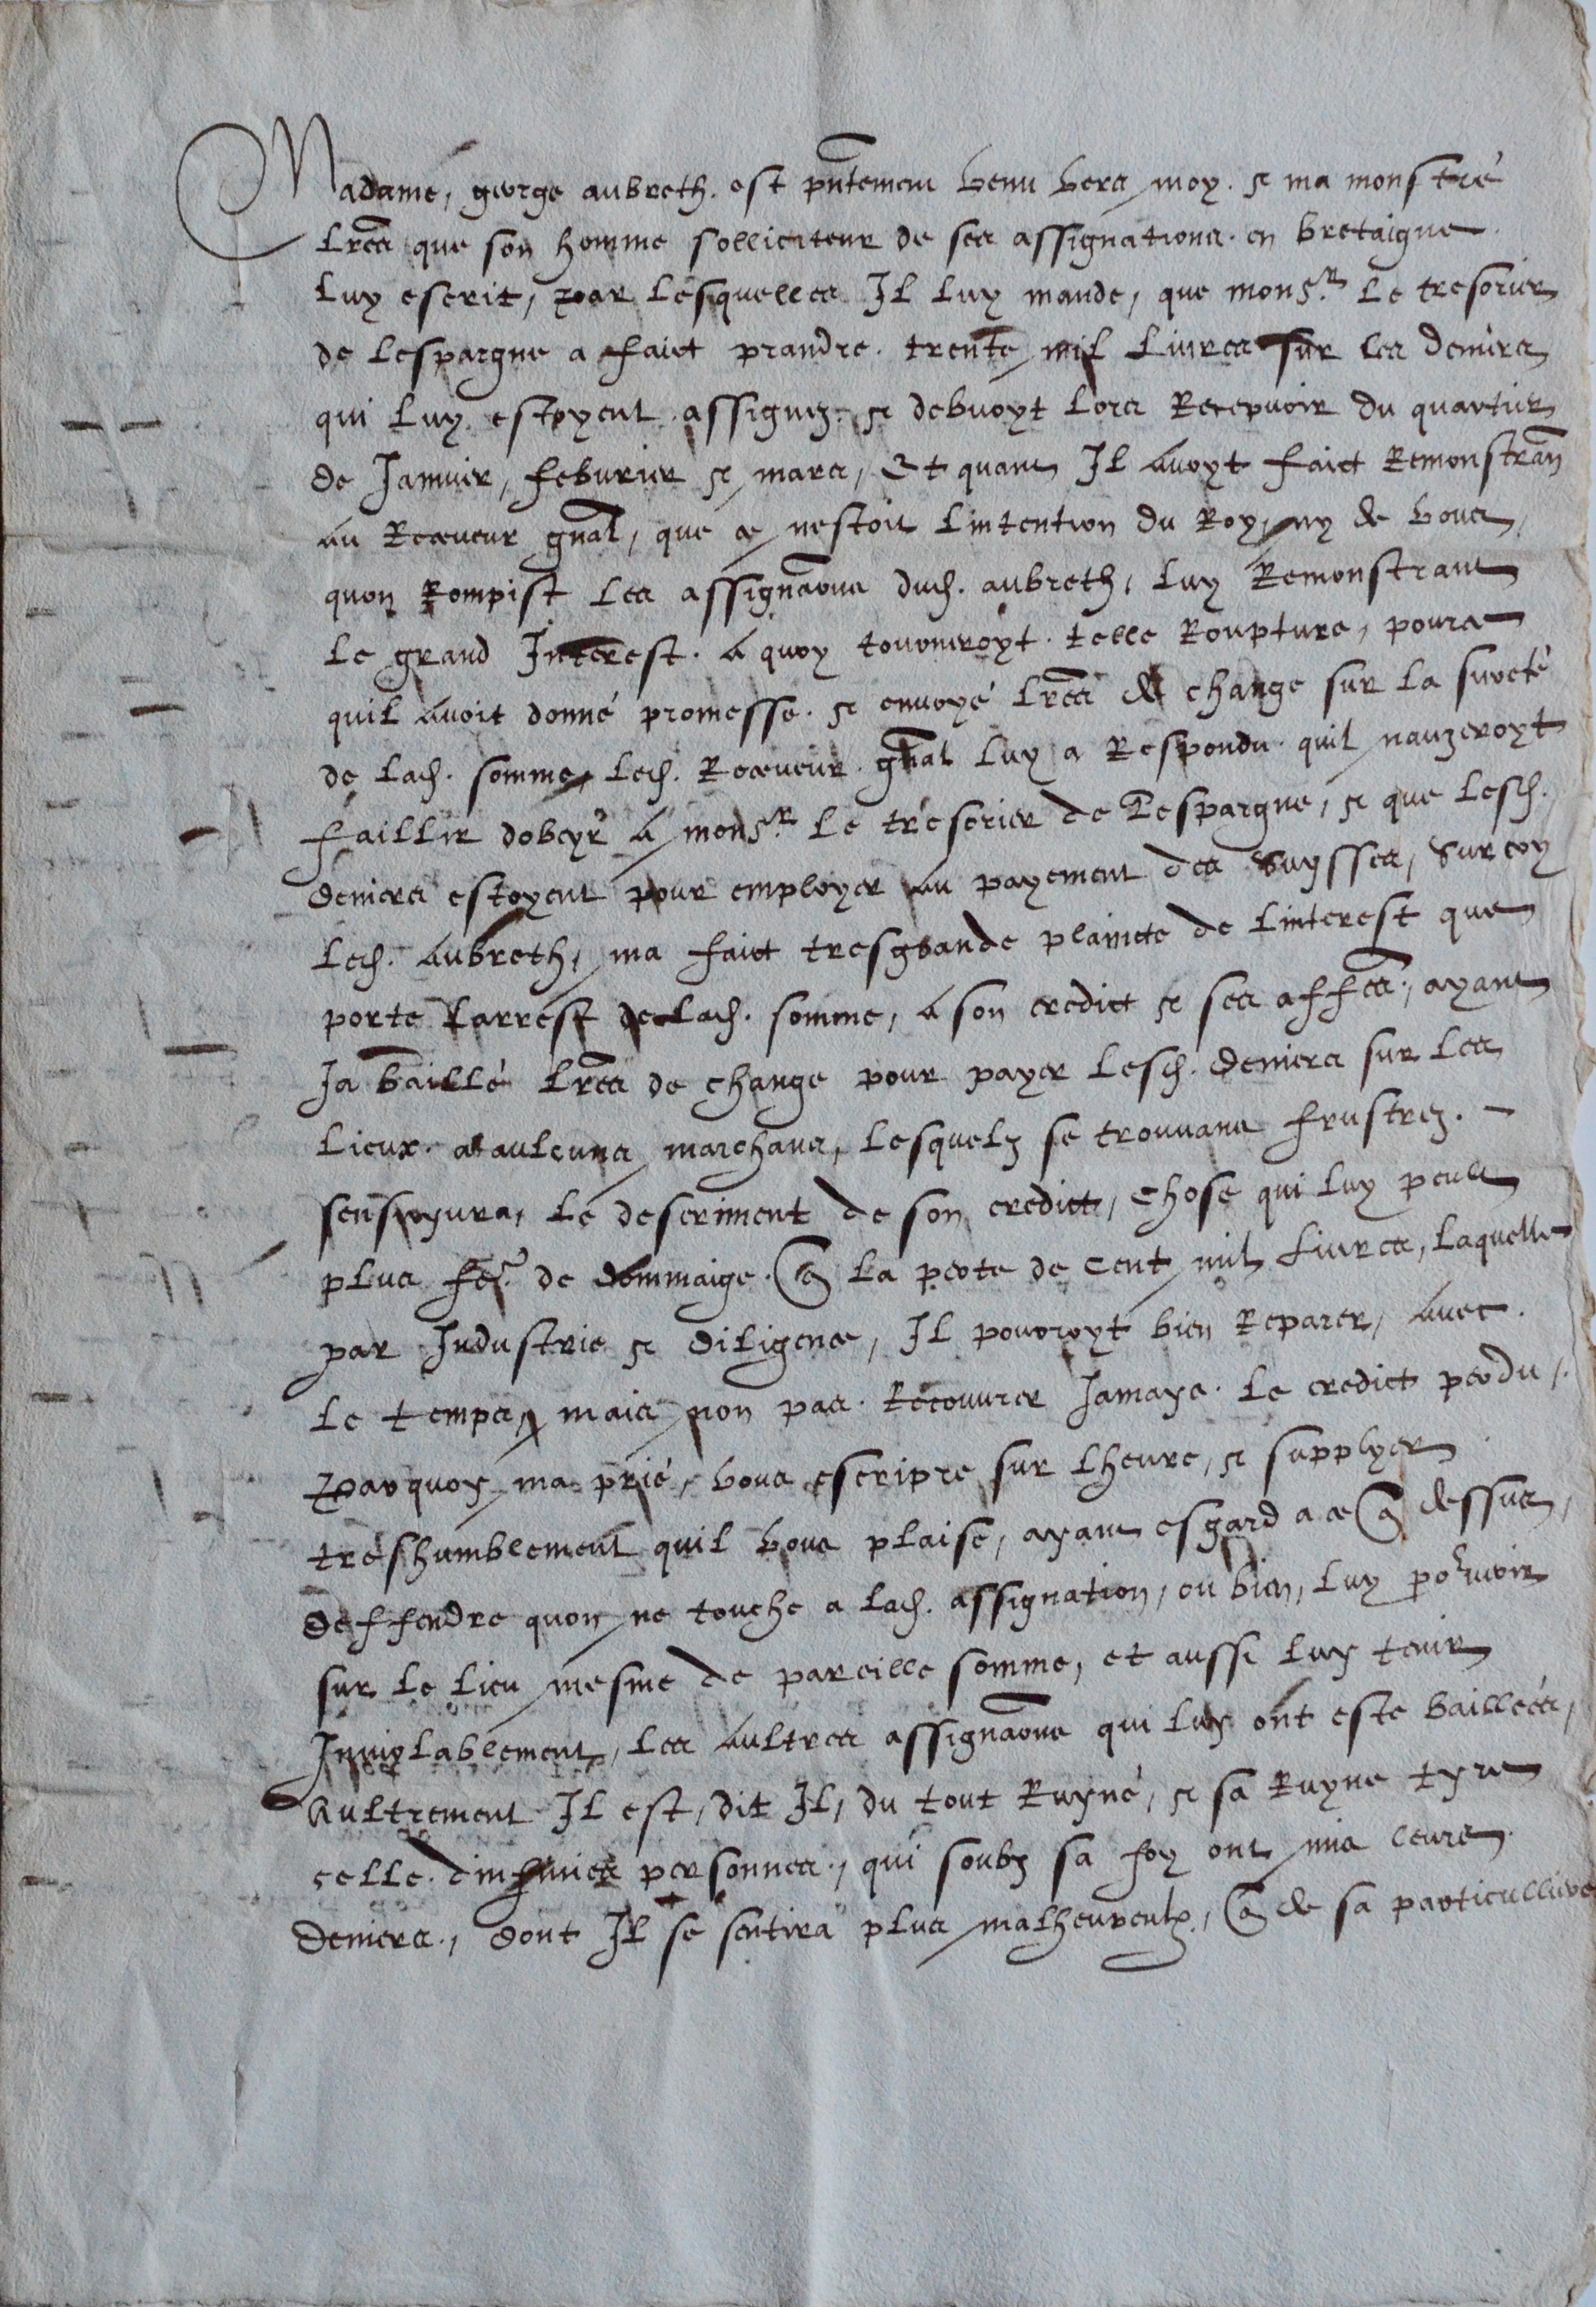 Madame, george aubreth. est pñtement venu vers moy. & ma monstré
lr̃es que son homme solliciteur de ses assignations. en bretaigne.
luy escrit, par lesquelles Il luy mande, que monsr. le tresorier
de lespargne a faict prandre. trente mil livres sur les deniers
qui luy estoyent assignez. & debvoyt lors Recepvoir du quartier
de Janvier, febvrier & mars, Et quant Il avoyt faict Remonstran̄
au Receveur gñal, que ce nestoit lintention du Roy, ny de vous,
quon Rompist les assignãons dud. aubreth, luy Remonstrant
le grand Interest. a quoy tourneroyt. telle Roupture, pource
quil avoit donné promesse. & envoyé lr̃es de change sur la sureté
de lad. somme, led. Receveur. gñal luy a Respondu. quil nauzeroyt
faillir dobeyr a monsr. le trésorier de Lespargne, & que lesd.
deniers estoyent pour employer au payement des Suysses, Surcoy
led. aubreth, ma faict tresgrande plaincte de linterest que
porte larrest de lad. somme, a son credict & ses affr̃es, ayant
Ja baillé lr̃es de change pour payer lesd. deniers sur les
lieux. a aulcuns marchans, lesquelz se trouvans frustrez. –
sensuyvra, le descriment de son credict, chose qui luy peult
plus fer̃. de dommaige. q̃ la perte de cent mil livres, laquelle
par Industrie & diligence, Il pourroyt bien Reparer, avec.
le temps, mais non pas. Recouvrer Jamays. le credict perdu,.
Parquoy ma prié, vous escripre sur lheure, & supplyer
treshumblement quil vous plaise, ayant esgard a ce q̃ dessus,
deffendre quon ne touche a lad. assignation, ou bien, luy porvoir
sur le lieu mesme de pareille somme, et aussi luy tenir
Inviolablement, les aultres assignãons qui luy ont este baillées,
Aultrement Il est, dit Il, du tout Ruyné, & sa Ruyne tyre
celle. dinfinies personnes., qui soubz sa foy ont mis leurs.
deniers., dont Il se sentira plus malheureulx, q̃ de sa particulliere